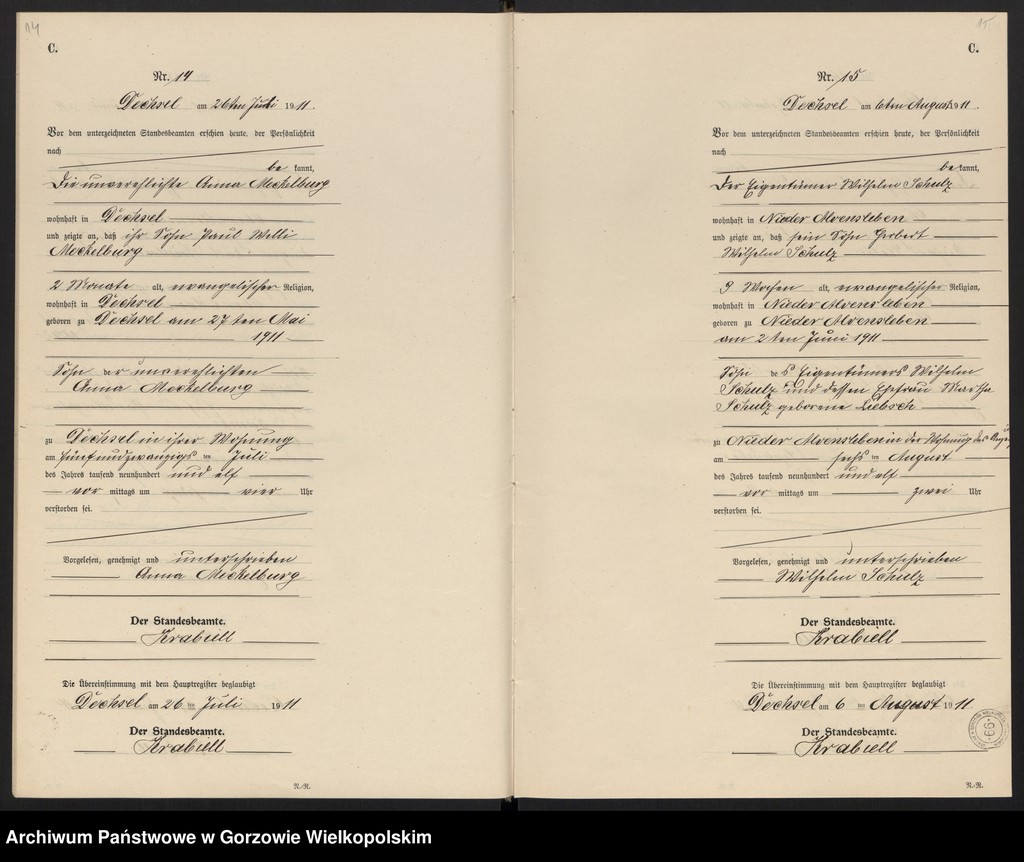 14
C.
Nr. 14
Dechsel am 26ten Juli 1911.
Vor dem unterzeichneten Standesbeamten erschien heute, der Persönlichkeit
nach
be kannt,
Die unverehelichte Anna Meckelburg
wohnhaft in Dechsel
und zeigte an, daß ihr Sohn Paul Willi
Meckelburg
2 Monate alt, evangelischer Religion,
wohnhaft in Dechsel
geboren zu Dechsel am 27ten Mai
1911
Sohn der unverehelichten
Anna Meckelburg
zu Dechsel in ihrer Wohnung
am fünfundzwanzigs ten Juli
des Jahres tausend neunhundert und elf
vor mittags um vier Uhr
verstorben sei.
Vorgelesen, genehmigt und unterschrieben
Anna Meckelburg
Der Standesbeamte.
Krabiell
Die Übereinstimmung mit dem Hauptregister beglaubigt
Dechsel am 26 ten Juli 1911
Der Standesbeamte.
Krabiell
N.-R.
15.
C.
Nr. 15
Dechsel am 6ten August 1911.
Vor dem unterzeichneten Standesbeamten erschien heute, der Persönlichkeit
nach
be kannt,
Der Eigentümer Wilhelm Schulz
wohnhaft in Nieder Alvensleben
und zeigte an, daß sein Sohn Herbert
Wilhelm Schulz
9 Wochen alt, evangelischer Religion,
wohnhaft in Nieder Alvensleben
geboren zu Nieder Alvensleben
am 2ten Juni 1911
Sohn des Eigentümers Wilhelm
Schulz und dessen Ehefrau Martha
Schulz geborene Liebsch
zu Nieder Alvensleben in der Wohnung des
am sechs ten August
des Jahres tausend neunhundert und elf
vor mittags um zwei Uhr
verstorben sei.
Vorgelesen, genehmigt und unterschrieben
Wilhelm Schulz
Der Standesbeamte.
Krabiell
Die Übereinstimmung mit dem Hauptregister beglaubigt
Dechsel am 6 ten August 1911
Der Standesbeamte.
Krabiell
N.-R.
Archiwum Państwowe w Gorzowie Wielkopolskim